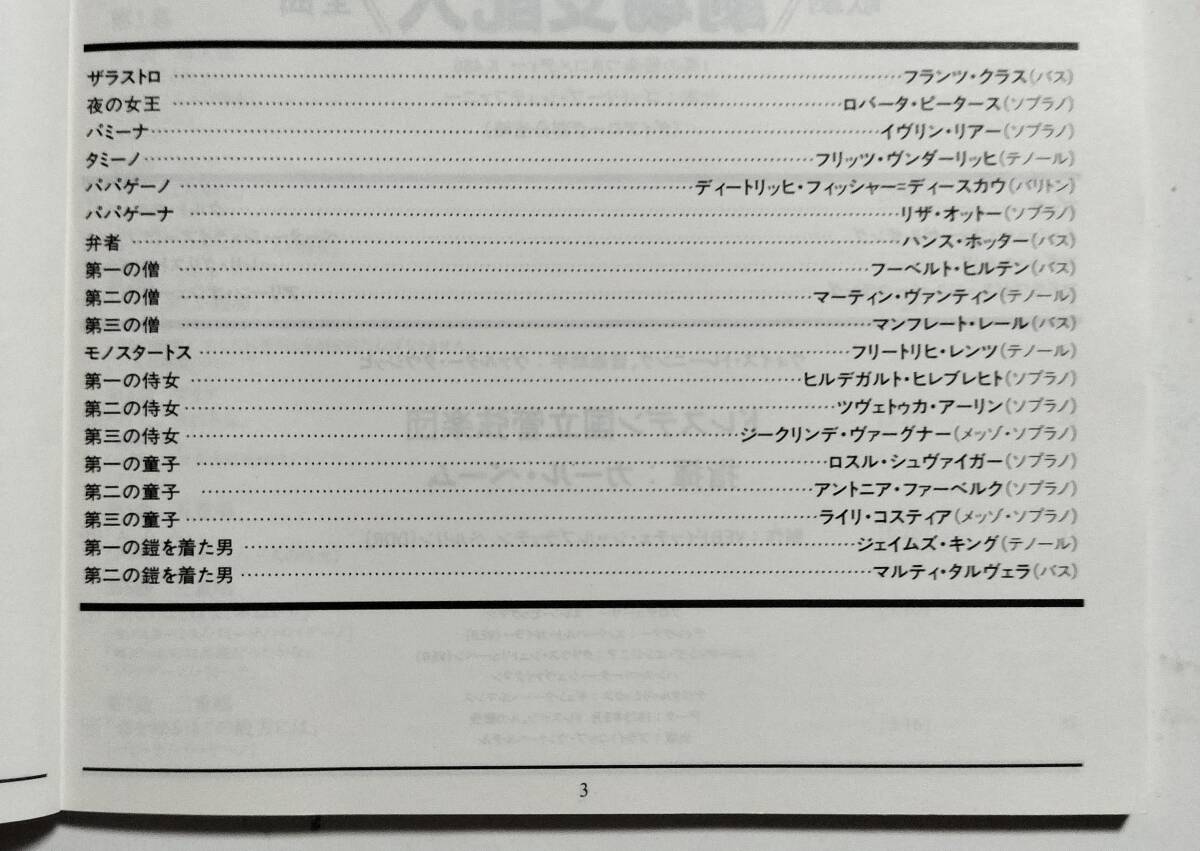 ザラストロ……フランツ・クラス(バス)
夜の女王……ロバータ・ピータース(ソプラノ)
パミーナ……イヴリン・リアー(ソプラノ)
タミーノ……フリッツ・ヴンダーリッヒ(テノール)
パパゲーノ……ディートリッヒ・フィッシャー=ディースカウ(バリトン)
パパゲーナ……リザ・オットー(ソプラノ)
弁者……ハンス・ホッター(バス)
第一の僧……フーベルト・ヒルテン(バス)
第二の僧……マーティン・ヴァンティン(テノール)
第三の僧……マンフレート・レール(バス)
モノスタートス……フリートリヒ・レンツ(テノール)
第一の侍女……ヒルデガルト・ヒレブレヒト(ソプラノ)
第二の侍女……ツヴェトゥカ・アーリン(ソプラノ)
第三の侍女……ジークリンデ・ヴァーグナー(メッゾ・ソプラノ)
第一の童子……ロスル・シュヴァイガー(ソプラノ)
第二の童子……アントニア・ファーベルク(ソプラノ)
第三の童子……ライリ・コスティア(メッゾ・ソプラノ)
第一の鎧を着た男……ジェイムズ・キング(テノール)
第二の鎧を着た男……マルティ・タルヴェラ(バス)
3